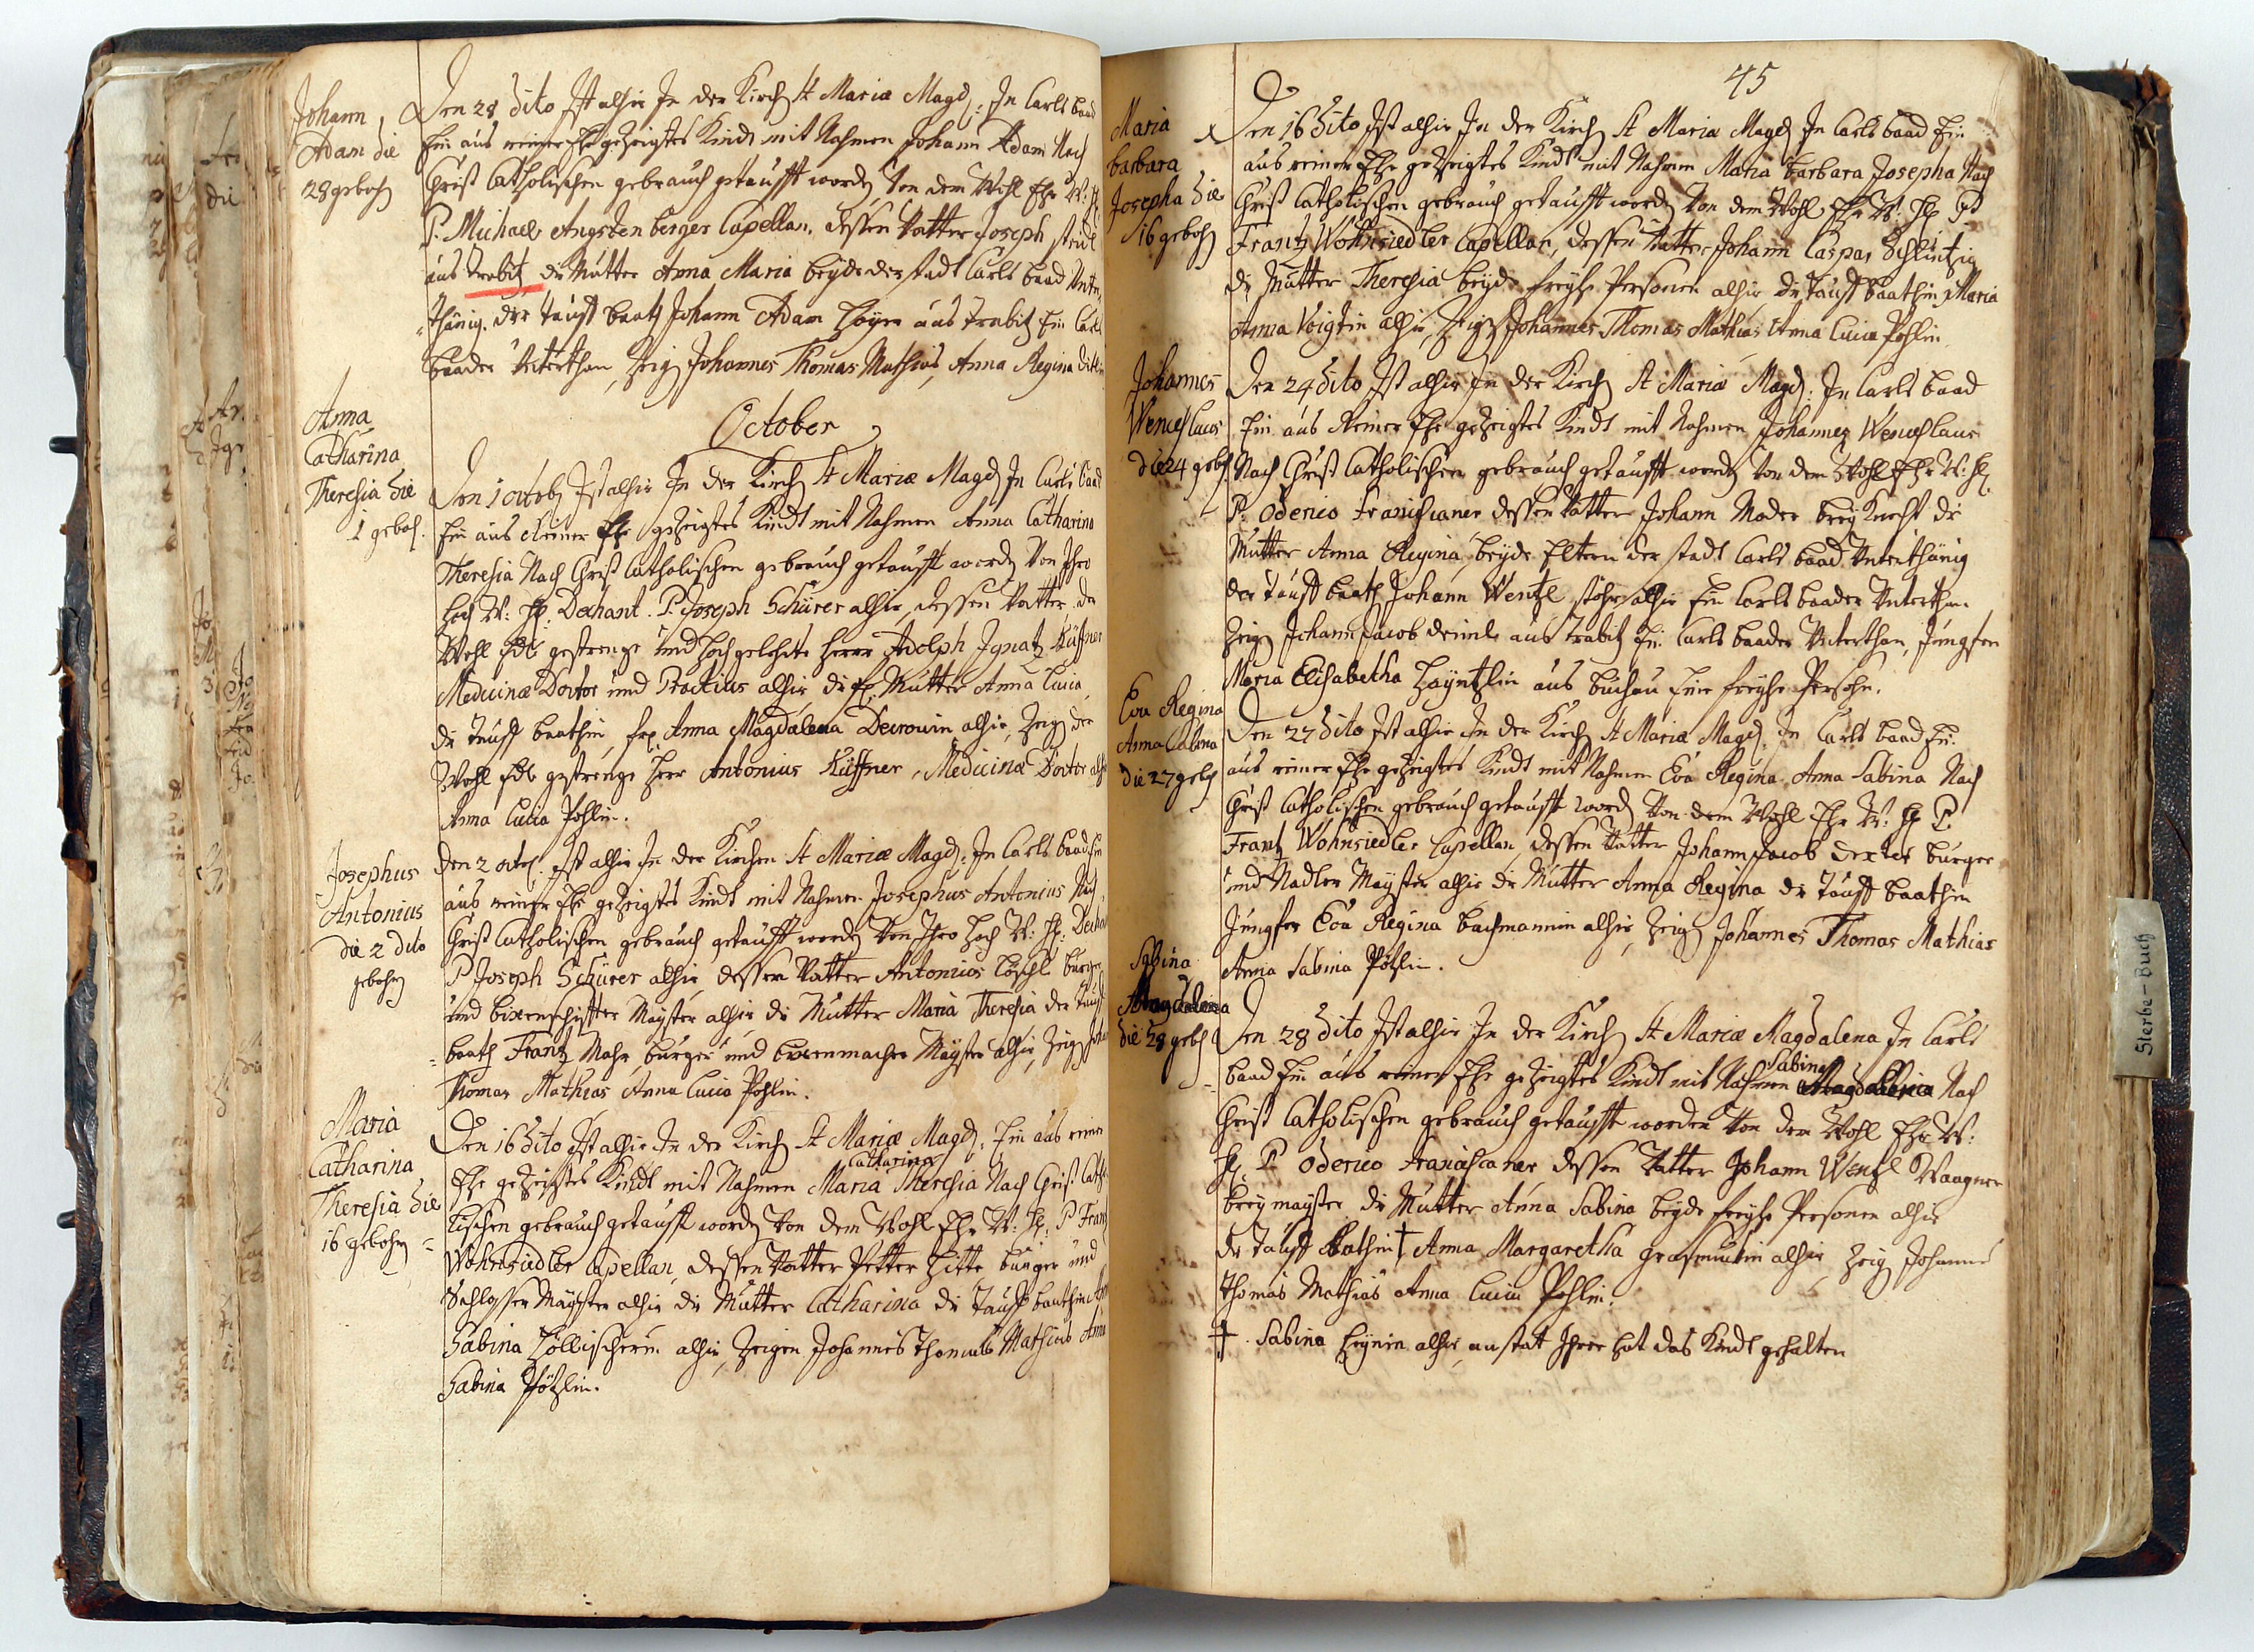 Johann
Adam die
28 gebohrn
Den 28 dito Ist alhir In der Kirch St Mariæ Magd: In Carls baad
Ein aus reiner Ehe gezeigtes Kindt mit Nahmen Johann Adam Nach
Christ Catholischen gebrauch getaufft worden Von dem Wohl Ehr W: H:
P: Michael Angstenberger Capellan, dessen Vatter Joseph
aus trabitz, die Mutter Anna Maria beyde der stadt Carls baad Unter
thänig. der tauff baath Johann Adam Hoyer aus trabitz Ein Carls
baader Unterthan, Zeigen Johannes Thomas Mathias, Anna Regina
October
Anna
Catharina
Theresia die
1 geboh.
Den 1 octob Ist alhir In der Kirch St Mariæ Magd In Carls baad
Ein aus Reiner Ehe gezeigtes Kindt mit Nahmen Anna Catharina
Theresia Nach Christ Catholischen gebrauch getaufft worden Von Ihro
Hoch W: H: Dechant P: Joseph Schürer alhir, dessen Vatter der
Wohl Edl gestrenge und Hochgelehrte Herrr Adolph Ignatz Küffner
Medicinæ Doctor und Practicus alhir, die Fr: Mutter Anna Lucia,
die Tauff baathin, fr: Anna Magdalena alhir, Zeigen der
Wohl Edl gestrenge Herr Antonius Küffner, Medicinæ Doctor alhir
Anna Lucia Pohlin.
Josephus
Antonius
die 2 dito
gebohrn
Den 2 octob. Ist alhir In der Kirchen St Mariæ Magd: In Carls baad Ein
aus reiner Ehe gezeigtes Kindt mit Nahmen Josephus Antonius Nach
Christ Catholischen gebrauch getaufft worden Von Ihro Hoch W: H: Dechant
P Joseph Schürer alhir, dessen Vatter Antonius Löschl burger
und bixenschiffter Mayster alhir die Mutter Maria Theresia der Tauff
baath Frantz Mahr, burger und bixenmacher Mayster alhir, Zeigen Johan
Thomas Mathias Anna Lucia Pohlin.
Maria
Catharina
Theresia die
16 gebohrn
Den 16 dito Ist alhir In der Kirch St Mariæ Magd: Ein aus reiner
Catharina
Ehe gezeigtes Kindt mit Nahmen Maria Theresia Nach Christ Catho
lischen gebrauch getaufft worden Von dem Wohl Ehr W: H: P Frantz
Wohnsiedler Capellan, dessen Vatter Petter Hitte burger und
Schlosser Mayster alhir die Mutter Catharina die Tauff baathin
Sabina Höllischerin alhir, Zeigen Johannes Thomas Mathias Anna
Sabina Pötzlin.
45
Maria
barbara
Josepha die
16 gebohrn
Den 16 dito Ist alhir In der Kirch St Maria Magd In Carls baad Ein
aus reiner Ehe gezeigtes Kindt mit Nahmen Maria barbara Josepha Nach
Christ Catholischen gebrauch getaufft worden Von dem Wohl Ehr W: H: P
Frantz Wohnsiedler Capellan, dessen Vatter Johann Caspar
die Mutter Theresia beyde freyhe Personen alhir die Tauff baathin Maria
Anna Voigtin alhir, Zeigen Johannes Thomas Mathias Anna Lucia Pohlin
Johannes
Wenceslaus
die 24 geboh.
Den 24 dito Ist alhir In der Kirch St Mariæ Magd: In Carls baad
Ein aus Reiner Ehe gezeigtes Kindt mit Nahmen Johannes Wenceslaus
Nach Christ Catholischen gebrauch getaufft worden Von dem Wohl Ehr W: H:
P: Oderico Franciscaner dessen Vatter Johann Moder brey Knecht die
Mutter Anna Regina, beyde Eltern der stadt Carls baad Unterthänig
der Tauff baath Johann Wentzl alhir Ein Carls baader Unterthan
Zeigen Johann Jacob aus trabitz Ein Carls baader Unterthan, Jungfer
Maria Elisabetha Hayntzlin aus buchau Eine freyhe Persohn.
Eva Regina
Anna Sabina
die 27 geboh
Den 27 dito Ist alhir In der Kirch St Mariæ Magd: In Carls baad Ein
aus reiner Ehe gezeigtes Kindt mit Nahmen Eva Regina Anna Sabina Nach
Christ Catholischen gebrauch getaufft worden Von dem Wohl Ehr W: H: P
Frantz Wohnsiedler Capellan, dessen Vatter Johann Jacob Dexler burger
und Nadler Mayster alhir die Mutter Anna Regina die Tauff baathin
Jungfer Eva Regina bachmannin alhir, Zeigen Johannes Thomas Mathias
Anna Sabina Pötzlin.
Sabina
Magdalena
die 28 geboh
Den 28 dito Ist alhir In der Kirch St Mariæ Magdalena In Carls
Sabina
baad Ein aus reiner Ehe gezeigtes Kindt mit Nahmen Nach
Christ Catholischen gebrauch getaufft worden Von dem Wohl Ehr W:
H: P Oderico Franciscaner dessen Vatter Johann Wenzl Waagner
breymayster die Mutter Anna Sabina beyde freyhe Personen alhir
die Tauff bathin † Anna Margaretha alhir Zeigen Johannes
Thomas Mathias Anna Lucia Pohlin.
‡ Sabina alhir, anstat Ihrer hat das Kindt gehalten
Sterbe-Buch